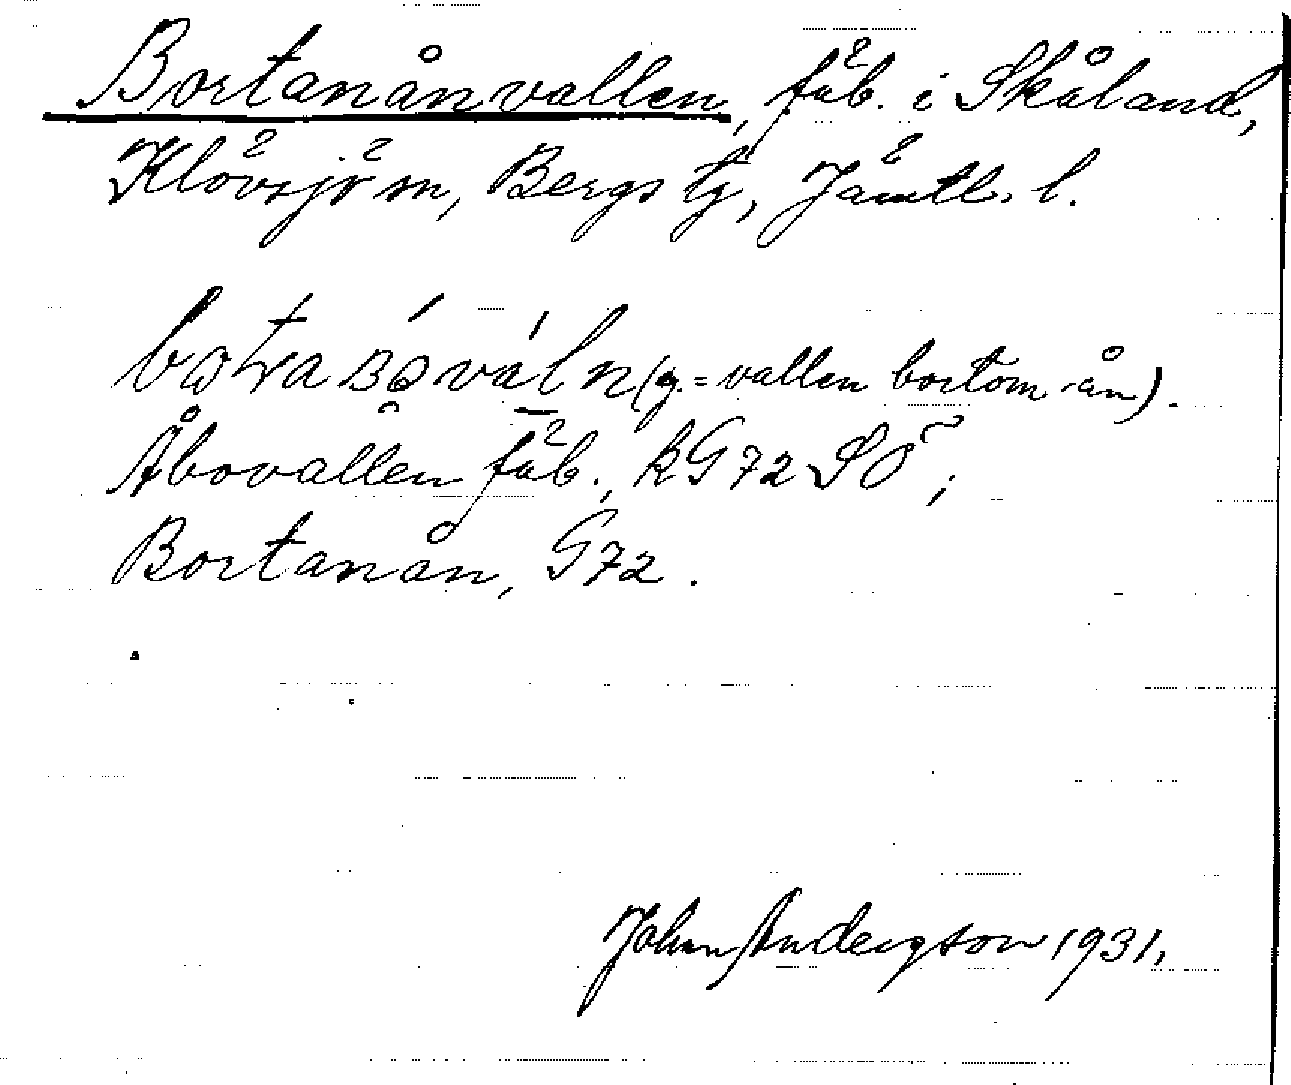 Bortanånvallen, fäb. i Skåland,
Klövsjö sn, Bergs tg, Jämtl. l.
(g. = vallen bortom ån).
Åbovallen fäb., kG72SÖ;
Bortanån, G72.
John Andersson 1931.